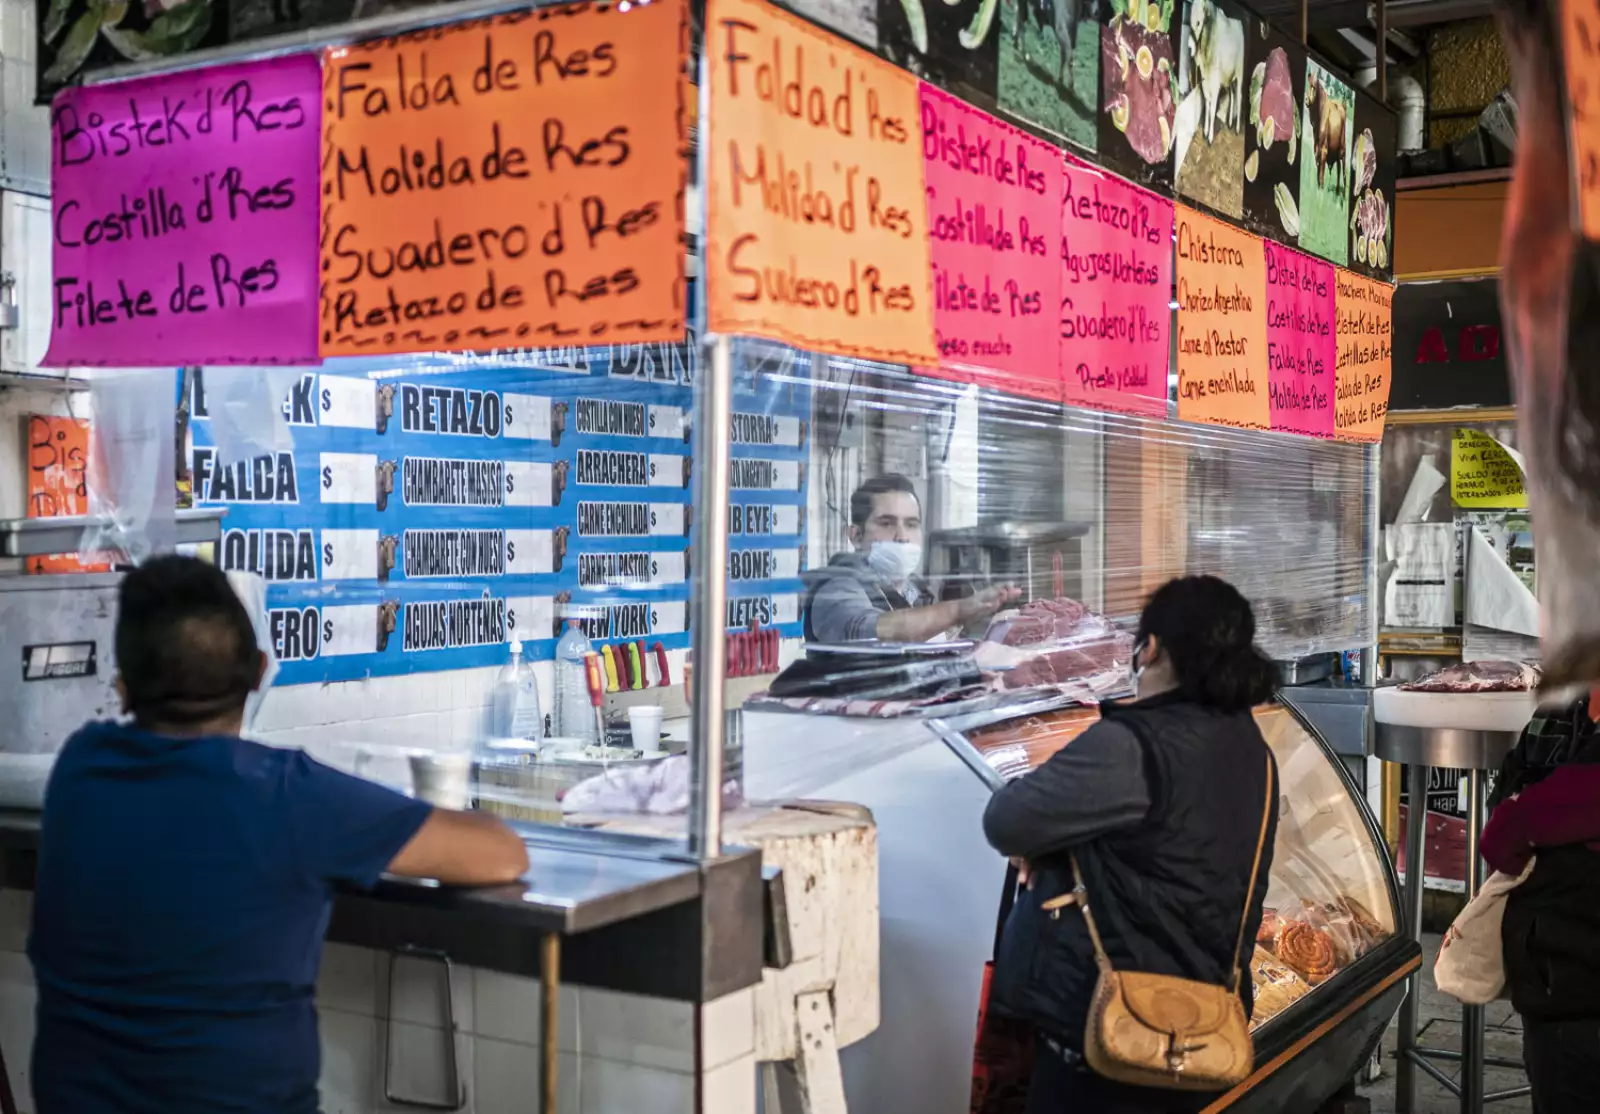 Bistek d' Res
Costilla d' Res
Filete de Res
Falda de Res
Molida de Res
Suadero d' Res
Retazo de Res
Falda d' Res
Molida d' Res
Suadero d' Res
Bistek de Res
Costilla de Res
Filete de Res
Peso exacto
Retazo d' Res
Agujas Norteñas
Suadero d' Res
Precio y Calidad
Chistorra
Chorizo Argentino
Carne al Pastor
Carne enchilada
Bistek de Res
Costillas de Res
Falda de Res
Molida de Res
Bistek de Res
Costillas de Res
Falda de Res
Molida de Res
K $
RETAZO $
COSTILLA CON HUESO $
STORRA $
FALDA $
CHAMBARETE MASISO $
ARRACHERA $
ZO ARGENTINO $
OLIDA $
CHAMBARETE CON HUESO $
CARNE ENCHILADA $
B EYE $
ERO $
AGUJAS NORTEÑAS $
CARNE AL PASTOR $
BONE $
NEW YORK $
LETES $
Bis
AD
VIVA CERCA
SUELDO
HORARIO
INTERESADOS